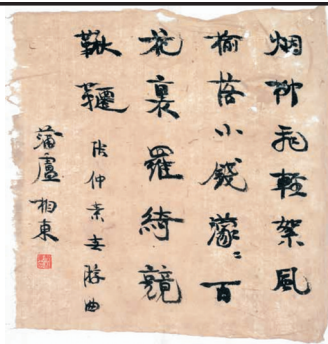 烟柳飛輕絮風
榆落小錢濛〻百
花裏羅綺競
鞦韆 张仲素春游曲
蒲廬 相東